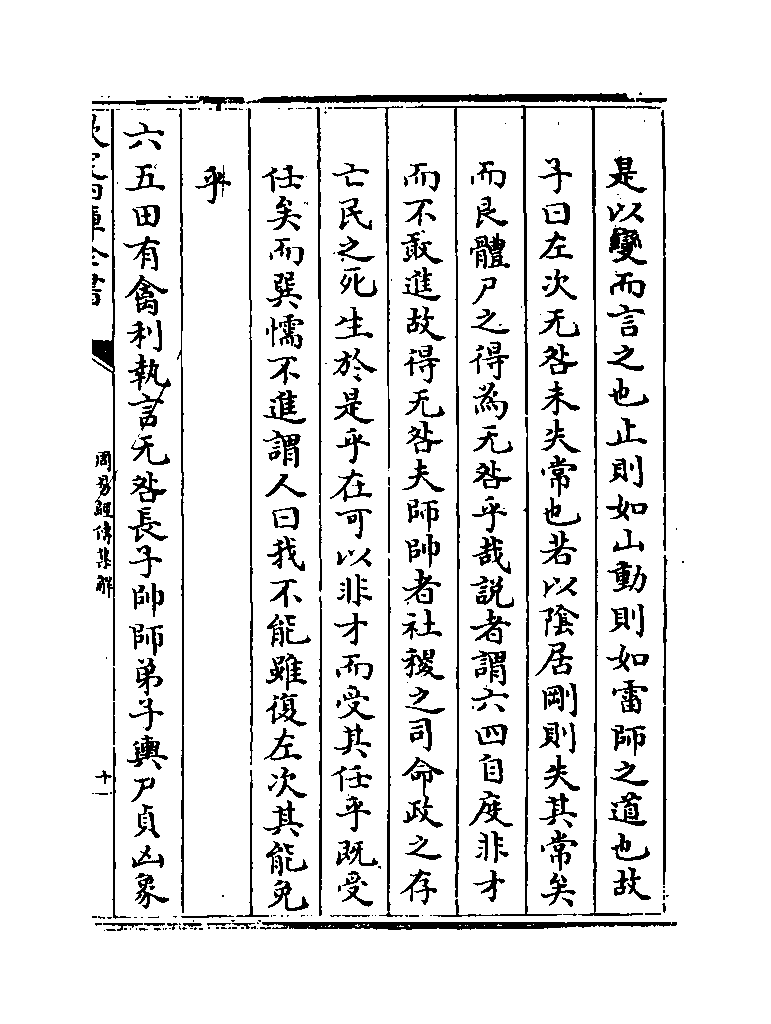 是以變而言之也止則如山動則如雷師之道也故
子曰左次无咎未失常也若以陰居剛則失其常矣
而艮體尸之得為无咎乎哉説者謂六四自度非才
而不敢進故得无咎夫師帥者社稷之司命政之存
亡民之死生於是乎在可以非才而受其任乎既受
任矣而巽懦不進謂人曰我不能雖復左次其能免
乎
六五田有禽利執言无咎長子帥師弟子輿尸貞凶象
欽定四庫全書
周易經傳集解
十一